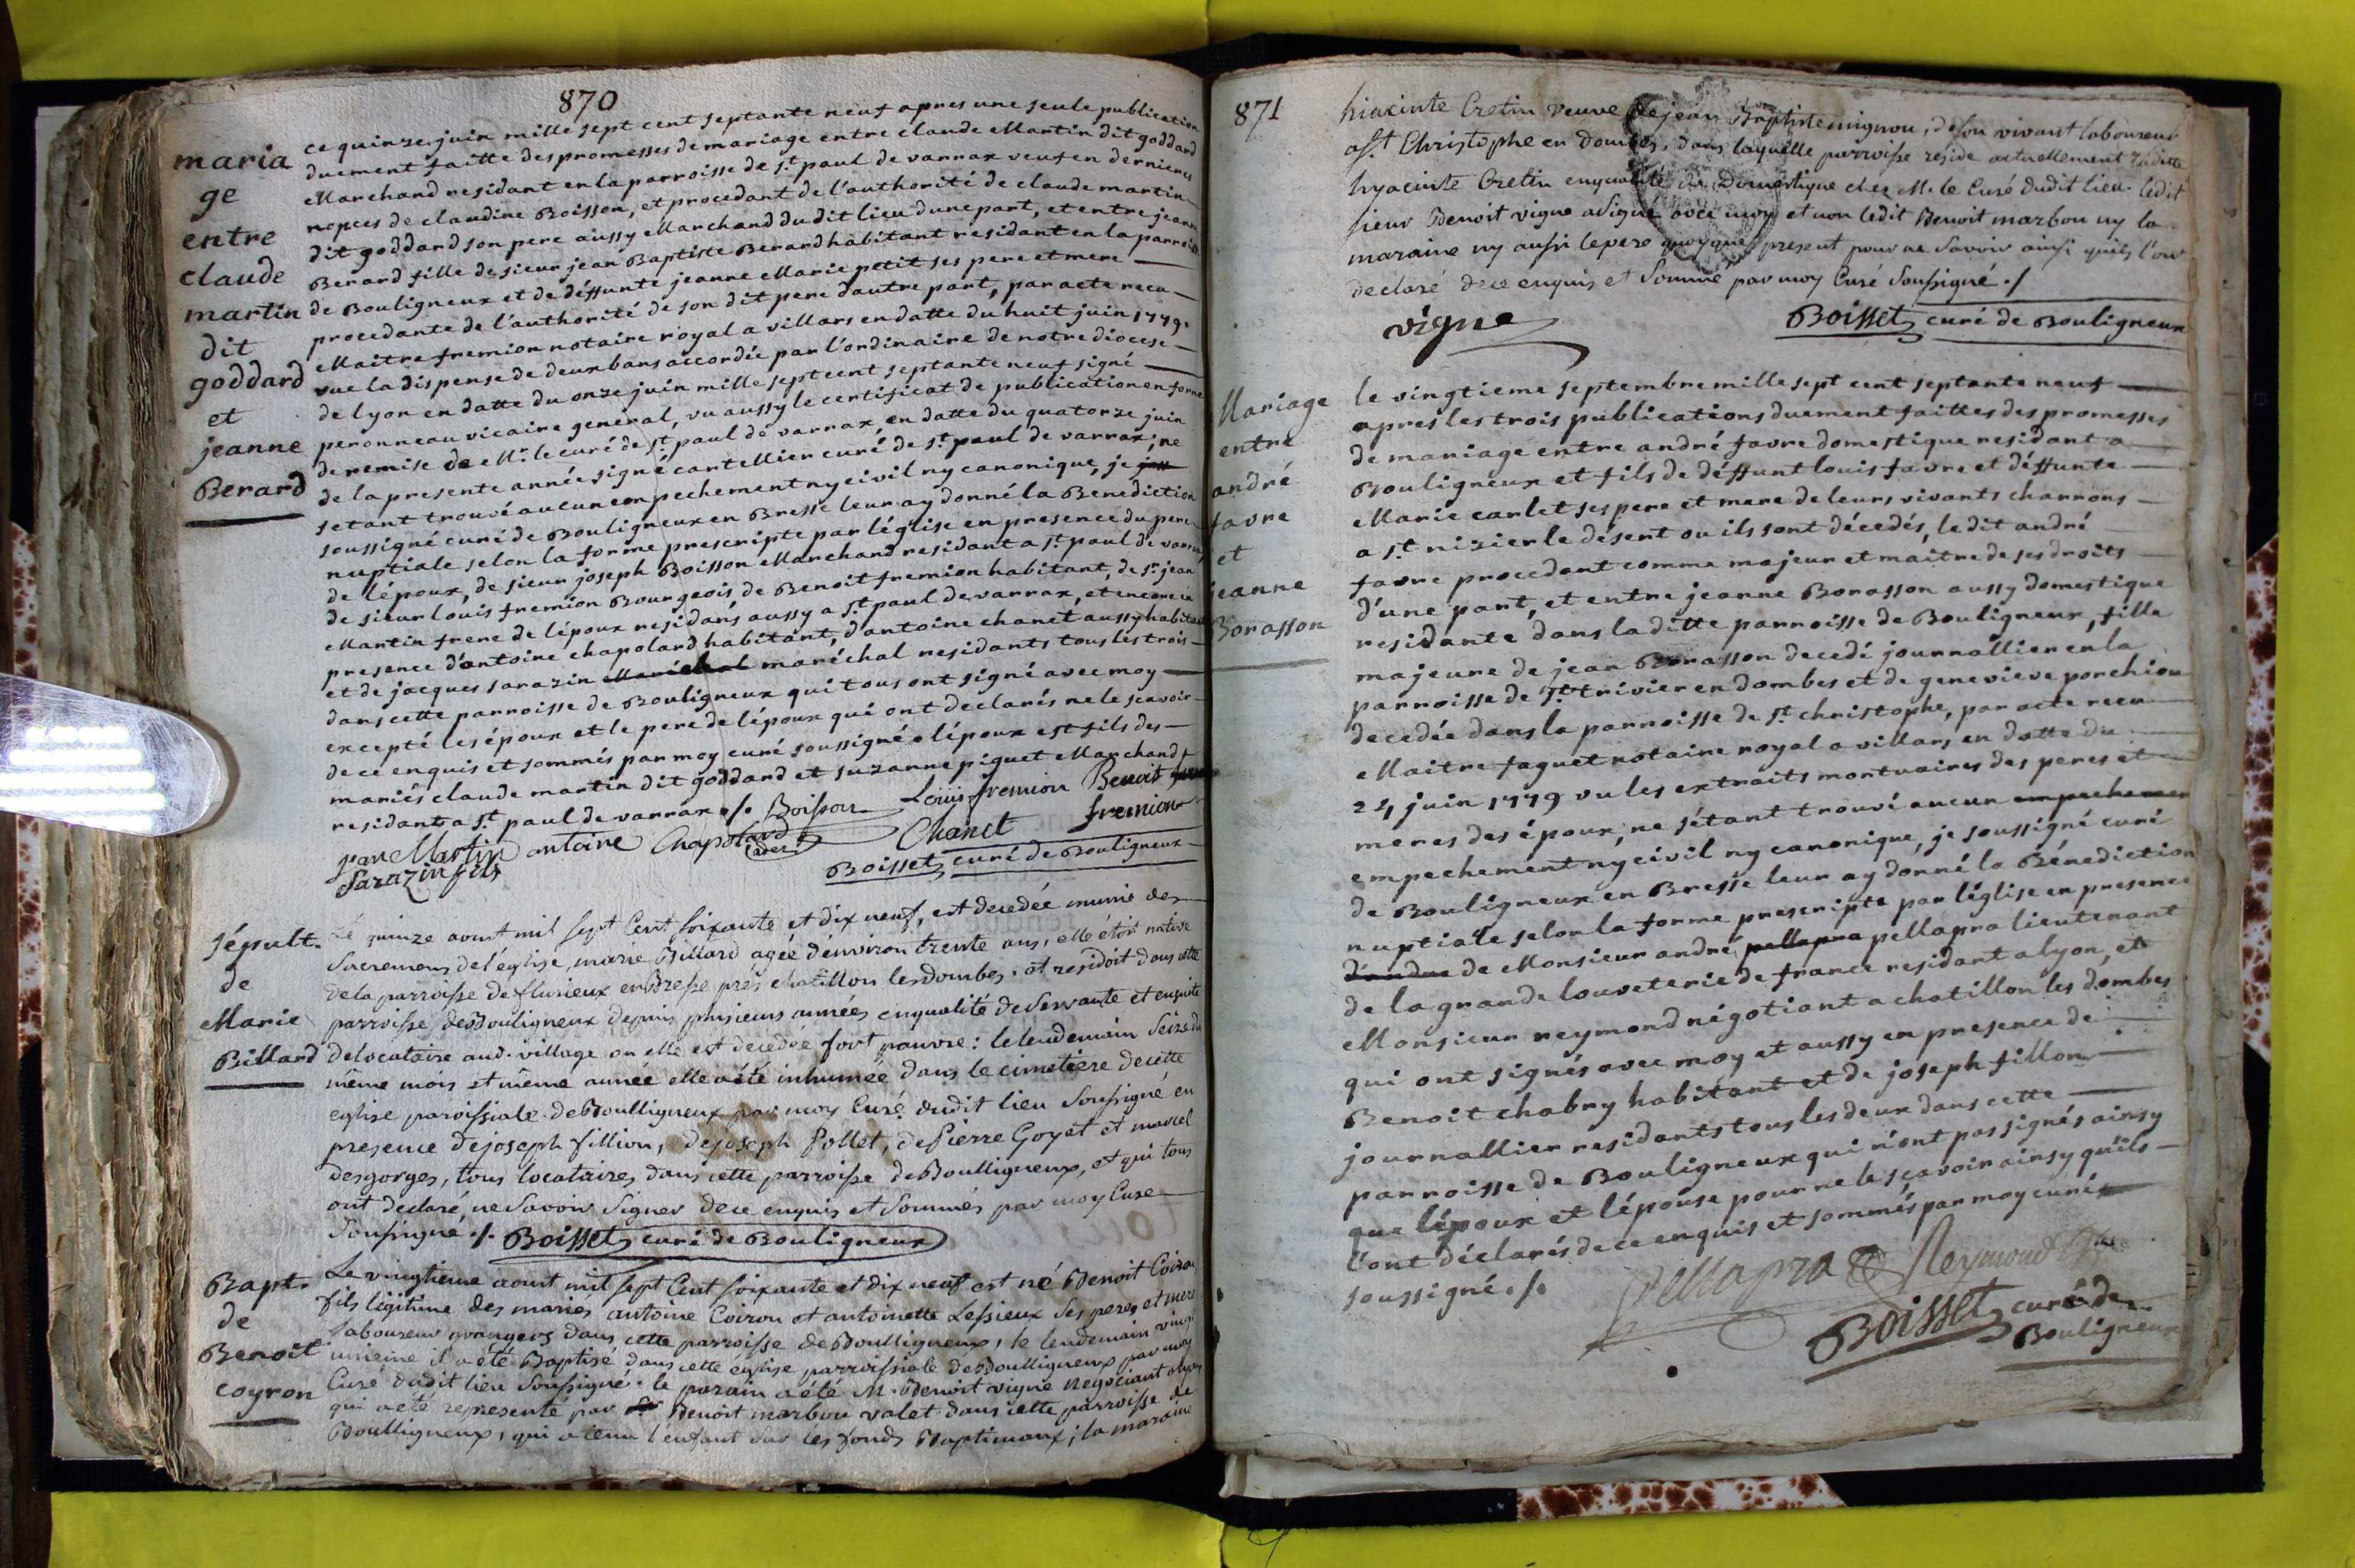 870
maria
ge
entre
claude
martin
dit
goddard
et
jeanne
Berard
ce quinze juin mille sept cent septante neuf apres une seule publication
duement faitte des promesses de mariage entre claude Martin dit goddard
Marchand residant en la parroisse de st paul de varrax veuf en dernieres
nopces de claudine Boisson, et procedant de l'authorité de claude martin
dit goddard son pere aussy Marchand du dit lieu dune part, et entre jeanne
Berard fille de sieur jean Baptiste Berard habitant residant en la parroisse
de Bouligneux et de déffunte jeanne Marie petit ses pere et mere
procedante de l'authorité de son dit pere dautre part, par acte recu
Maitre fremion notaire royal a villars en datte du huit juin 1779.
vue la dispense de deux bans accordée par l'ordinaire de notre diocese
de lyon en datte du onze juin mille sept cent septante neuf signé
peronneau vicaire general, vu aussy le certificat de publication en forme
de remise de Mr. le curé de st paul de varrax, en datte du quatorze juin
de la presente année signé cartellier curé de st paul de varrax; ne
setant trouvé aucun empechement ny civil ny canonique, je
soussigné curé de Bouligneux en Bresse leur ay donné la Benediction
nuptiale selon la forme prescripte par léglise en presence du pere
de lépoux, de sieur joseph Boisson Marchand residant a st paul de varrax
de sieur louis fremion Bourgeois, de Benoit fremion habitant, de sr jean
Martin frere de lépoux residans aussy a st paul de varrax, et encore en
presence d'antoine chapolard habitant, d'antoine chanet aussy habitant
et de jacques sarazin Maréchal maréchal residants tous les trois
dans cette parroisse de Bouligneux qui tous ont signé avec moy
excepté les époux et le pere de lépoux qui ont declarés ne le scavoir
de ce enquis et sommés par moy curé soussigné lépoux est fils des
mariés claude martin dit goddard et suzanne piguet Marchand
residant a st paul de varrax ./. Boisson Louis fremion Benoit
jean Martin antoine Chapolard Chanet fremion
Sarazin fils
Boisset curé de Bouligneux
sépult.
de
Marie
Billard
Le quinze aoust mil sept Cent soixante et dix neuf, est decedée munie des
Sacremens de l'eglise, marie Billard agée d'environ trente ans, elle étoit native
de la parroisse de flurieux en Bresse près chatillon les dombes. et residoit dans cette
parroisse de Bouligneux depuis plusieurs années en qualité de Servante et ensuite
de locataire aud. village ou elle est decedée fort pauvre: le lendemain Seize du
même mois et même année elle a été inhumée dans le cimetière de cette
eglise paroissiale de Boulligneux par moy Curé dudit lieu Soussigné en
presence de joseph fillion, de joseph Pollet, de Pierre Goyet et marcel
desgorges, tous locataires dans cette parroisse de Boulligneux, et qui tous
ont declaré ne Savoir Signer de ce enquis et Sommés par moy Curé
Soussigné ./. Boisset curé de Bouligneux
Bapt.
de
Benoit
coyron
Le vingtieme aoust mil sept Cent soixante et dix neuf est né Benoit Coiron
fils légitime des mariés antoine Coiron et antoinette Lessieux Ses pere et mere
laboureurs grangers dans cette parroisse de Boulligneux, le lendemain vingt
unieme il a été Baptisé dans cette église parroissiale de Boulligneux par moy
Curé dudit lieu Soussigné. le parain a été M. Benoit vigne negociant a lyon
qui a été representé par Benoit marbou valet dans cette parroisse de
Boulligneux, qui a tenu l'enfant sur les fonds Baptimaux; la maraine
871
hiacinte Cretin veuve de jean Baptiste mignou, de son vivant laboureur
a st Christophe en Dombes, dans laquelle parroisse réside actuellement ladite
hyacinte Cretin en qualité de Domestique chez M. le Curé dudit lieu. ledit
sieur Benoit vigne a Signé avec moy et non ledit Benoit marbou ny la
maraine ny aussi le pere quoyque present pour ne Savoir ainsi qu'ils l'ont
declaré de ce enquis et Sommé par moy Curé Soussigné ./
vigne
Boisset curé de Bouligneux
Mariage
entre
andré
favre
et
jeanne
Borasson
le vingtieme septembre mille sept cent septante neuf
apres les trois publications duement faittes des promesses
de mariage entre andré favre domestique residant a
Bouligneux et fils de déffunt louis favre et déffunte
Marie carlet ses pere et mere de leurs vivants charrons
a st nizier le désert ou ils sont décedés, le dit andré
favre procedant comme majeur et maitre de ses droits
d'une part, et entre jeanne Borasson aussy domestique
residante dans la ditte parroisse de Bouligneux, fille
majeure de jean Borasson decedé journallier en la
parroisse de st trivier en dombes et de genevieve porchion
decedée dans la parroisse de st christophe, par acte recu
Maitre faguet notaire royal a villars en datte du
24 juin 1779 vu les extraits mortuaires des peres et
meres des époux, ne sétant trouvé aucun empechement
empechement ny civil ny canonique, je soussigné curé
de Bouligneux en Bresse leur ay donné la Bénediction
nuptiale selon la forme prescripte par léglise en presence
d'andré de Monsieur andré pellapra pellapra lieutenant
de la grande louveterie de france residant a lyon, et
Monsieur reymond négotiant a chatillon les dombes
qui ont signés avec moy et aussy en presence de
Benoit chabry habitant et de joseph fillon
journallier residants tous les deux dans cette
parroisse de Bouligneux qui n'ont pas signés ainsy
que l'époux et l'épouse pour ne le sçavoir ainsy qu'ils
l'ont déclarés de ce enquis et sommés par moy curé
soussigné ./.
Pellapra Reymond
Boisset curé de
Bouligneux